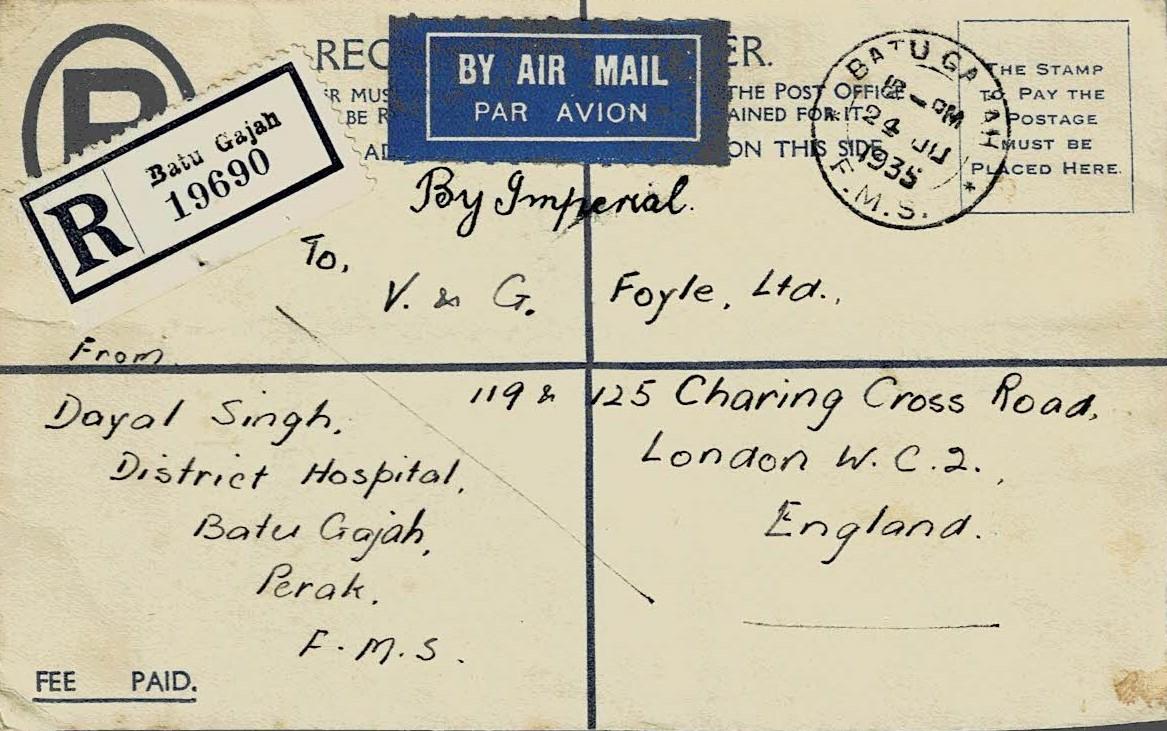 R
REC
ER.
BY AIR MAIL
PAR AVION
R MUS
THE POST OFFICE
BE R
AINED FOR IT.
AD
ON THIS SIDE
BATU GAJAH
PM
24 JU
1935
F.M.S.
THE STAMP
TO PAY THE
POSTAGE
MUST BE
PLACED HERE.
R
Batu Gajah
19690
By Imperial.
To,
V. & G. Foyle, Ltd.,
119 & 125 Charing Cross Road,
London W.C.2.,
England.
From
Dayal Singh,
District Hospital,
Batu Gajah,
Perak,
F.M.S.
FEE PAID.